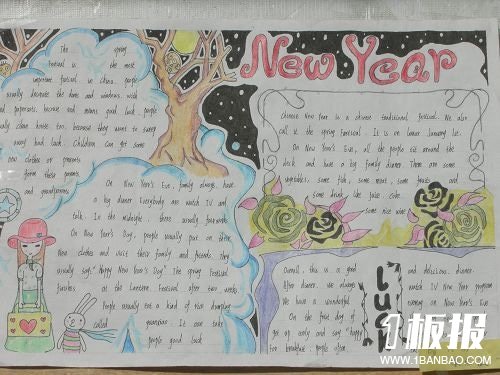 The spring
Festival is the most
important festival in China. people
usually decorate the doors and windows with
red papercuts, because red means good luck. people
usually clean house too. because they want to sweep
away bad luck. Children can get some
new clothes or presents
form these parents
and grandparents.
On New Year's Eve, family always have
a big dinner. Everybody are watch TV and
talk. In the midnight, there usually fireworks
On New Year's Day, people usually put on their
New clothes and visit their family and friends. they
usually says: "Happy New Year's Day." The spring Festival
finishes at the Lantern Festival after two weeks.
People usually eat a kind of rice dumpling
called yuanxiao. It can take
people good luck
New Year
Chinese New Year is a Chinese traditional festival. We also
call it the spring Festival. It is on lunar January 1st.
On New Year's Eve, all the people sit around the
desk and have a big family dinner. There are some
vegetables, some fish, some meat, some fruits and
some drink like juice Coke.
some nice wine
Overall, this is a good and delicious dinner.
After dinner, we always watch TV New Year program
We have a wonderful evening on New Year's Eve
On the first day of
get up early and say "happy
for breakfast, people often
luck
1板报
WWW.1BANBAO.COM